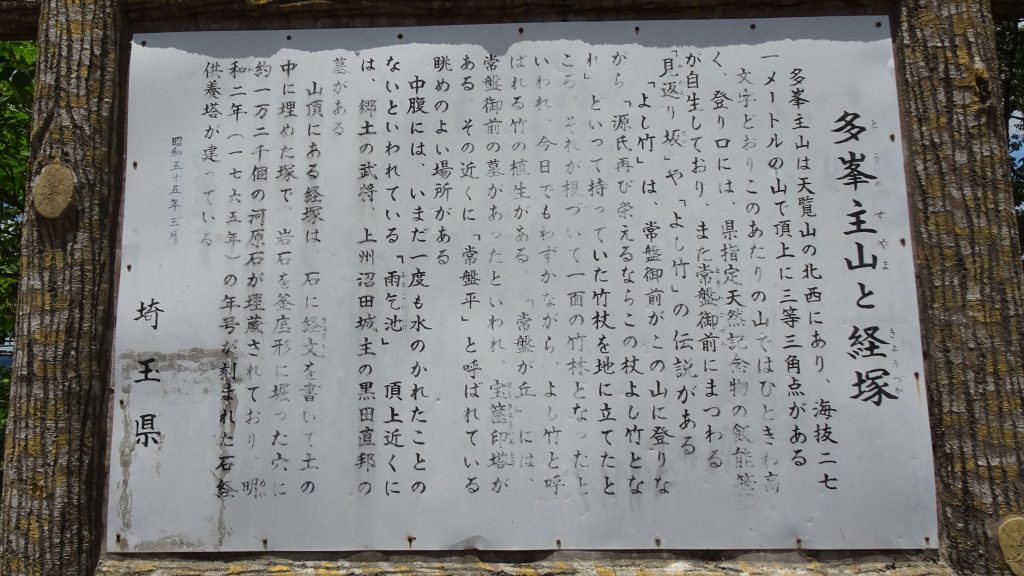 多峯主山と経塚
多峯主山は天覧山の北西にあり、海抜二七
一メートルの山で頂上に三等三角点がある
文字どおりこのあたりの山ではひときわ高
く、登り口には、県指定天然記念物の飯能笹
が自生しており、また常盤御前にまつわる
「見返り坂」や「よし竹」の伝説がある
「よし竹」は、常盤御前がこの山に登りな
がら「源氏再び栄えるならこの杖よし竹とな
れ」といって持っていた竹杖を地に立てたと
ころ、それが根づいて一面の竹林となったと
いわれ、今日でもわずかながら、よし竹と呼
ばれる竹の植生がある。「常盤が丘」には、
常盤御前の墓があったといわれ、宝篋印塔が
ある その近くに「常盤平」と呼ばれている
眺めのよい場所がある
中腹には、いまだ一度も水のかれたことの
ないといわれている「雨乞池」 頂上近くに
は、郷土の武将、上州沼田城主の黒田直邦の
墓がある
山頂にある経塚は、石に経文を書いて土の
中に埋めた塚で、岩石を釜底形に堀った穴に
約一万二千個の河原石が埋蔵されており、明
和二年(一七六五年)の年号が刻まれた石経
供養塔が建っている
昭和五十五年三月
埼玉県